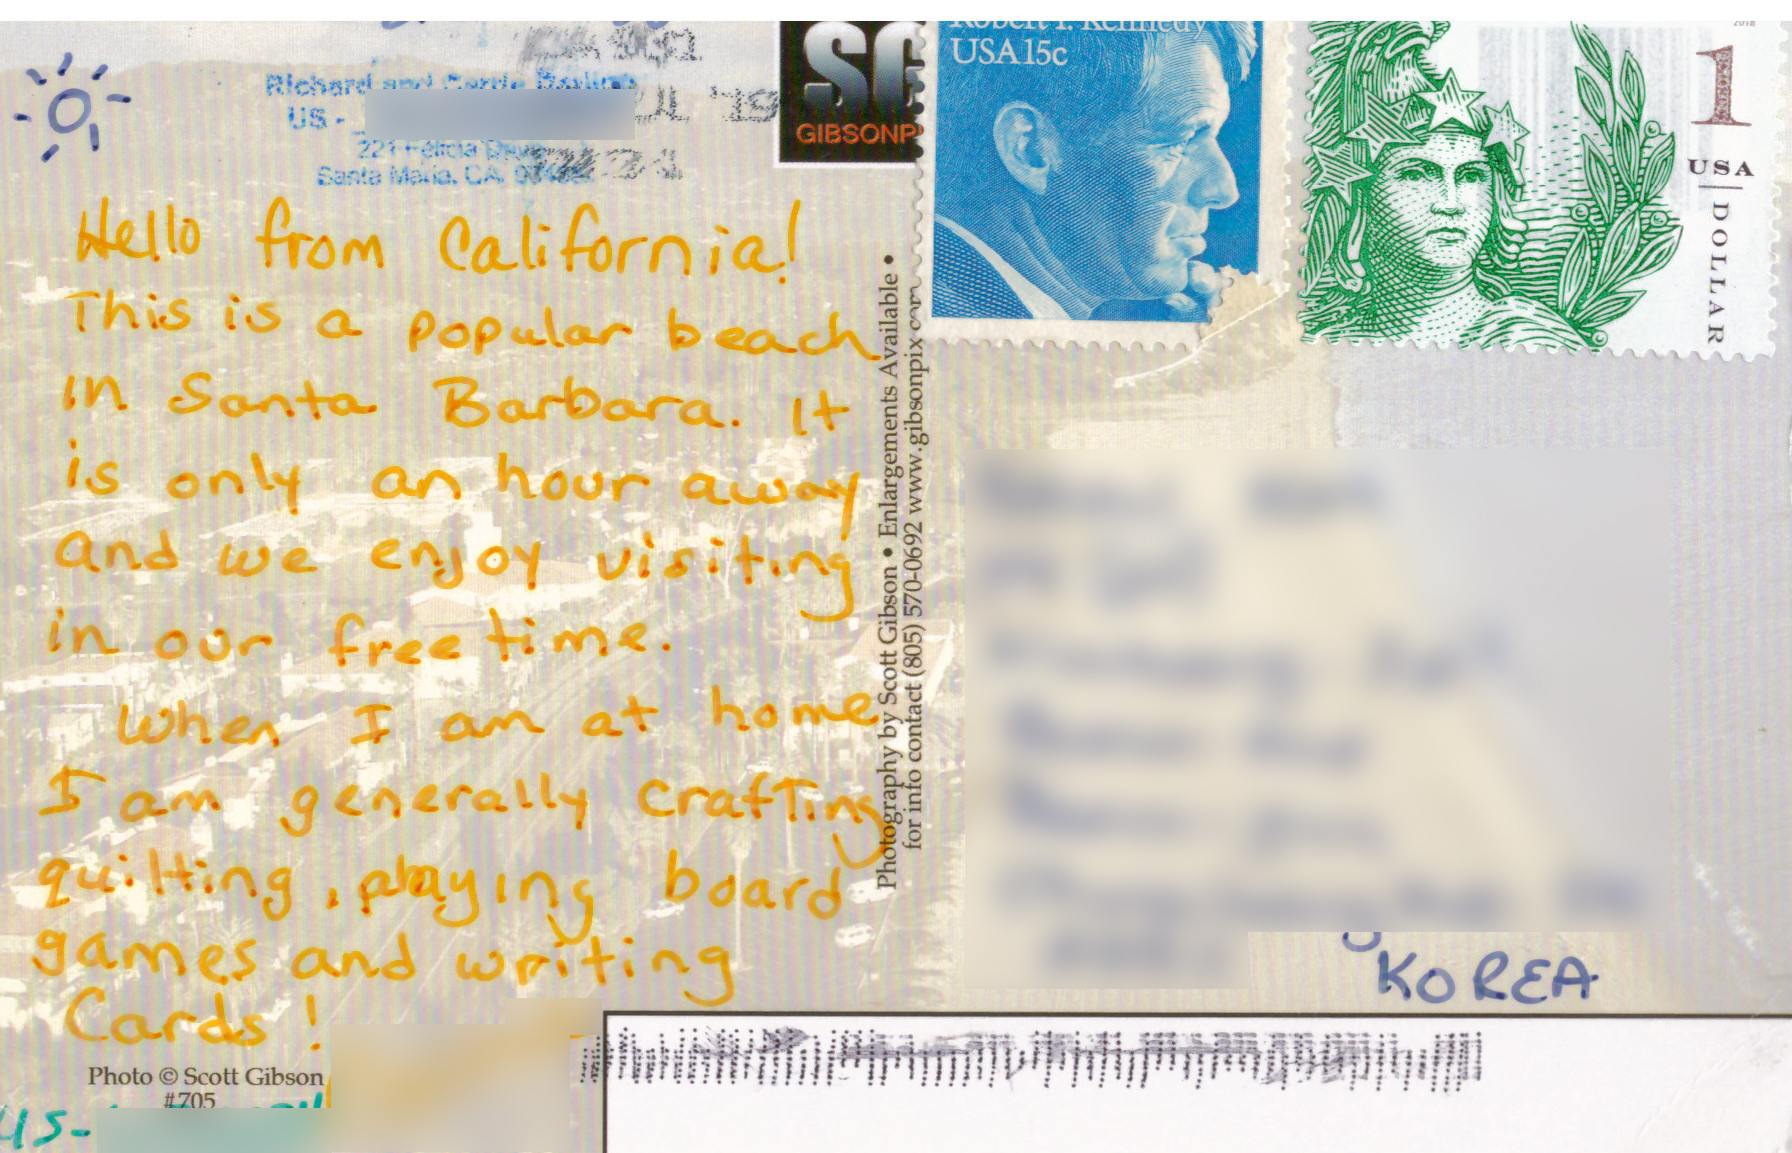 Richard and
US -
Santa Maria, CA
SG
GIBSONP
Robert F. Kennedy
USA 15c
2018
1
USA
DOLLAR
Hello from California!
This is a popular beach
in Santa Barbara. It
is only an hour away
and we enjoy visiting
in our free time.
When I am at home
I am generally crafting
quilting, playing board
games and writing
Cards!
Photography by Scott Gibson • Enlargements Available •
for info contact (805) 570-0692 www.gibsonpix.com
KOREA
Photo © Scott Gibson
#705
US-